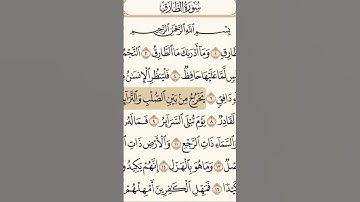 سُورَةُ الطَّارِقِ
بِسْمِ اللَّهِ الرَّحْمَٰنِ الرَّحِيمِ
طَّارِقِ ١ وَمَآ أَدْرَىٰكَ مَا ٱلطَّارِقُ ٢ ٱلنَّجْمُ
سٍ لَّمَّا عَلَيْهَا حَافِظٌ ٤ فَلْيَنظُرِ ٱلْإِنسَٰنُ مِ
ءٍ دَافِقٍ ٦ يَخْرُجُ مِنۢ بَيْنِ ٱلصُّلْبِ وَٱلتَّرَآ
لَقَادِرٌ ٨ يَوْمَ تُبْلَى ٱلسَّرَآئِرُ ٩ فَمَا لَهُۥ
وَٱلسَّمَآءِ ذَاتِ ٱلرَّجْعِ ١١ وَٱلْأَرْضِ ذَاتِ ٱ
صْلٌ ١٣ وَمَا هُوَ بِٱلْهَزْلِ ١٤ إِنَّهُمْ يَكِيدُو
كَيْدًا ١٦ فَمَهِّلِ ٱلْكَٰفِرِينَ أَمْهِلْهُمْ